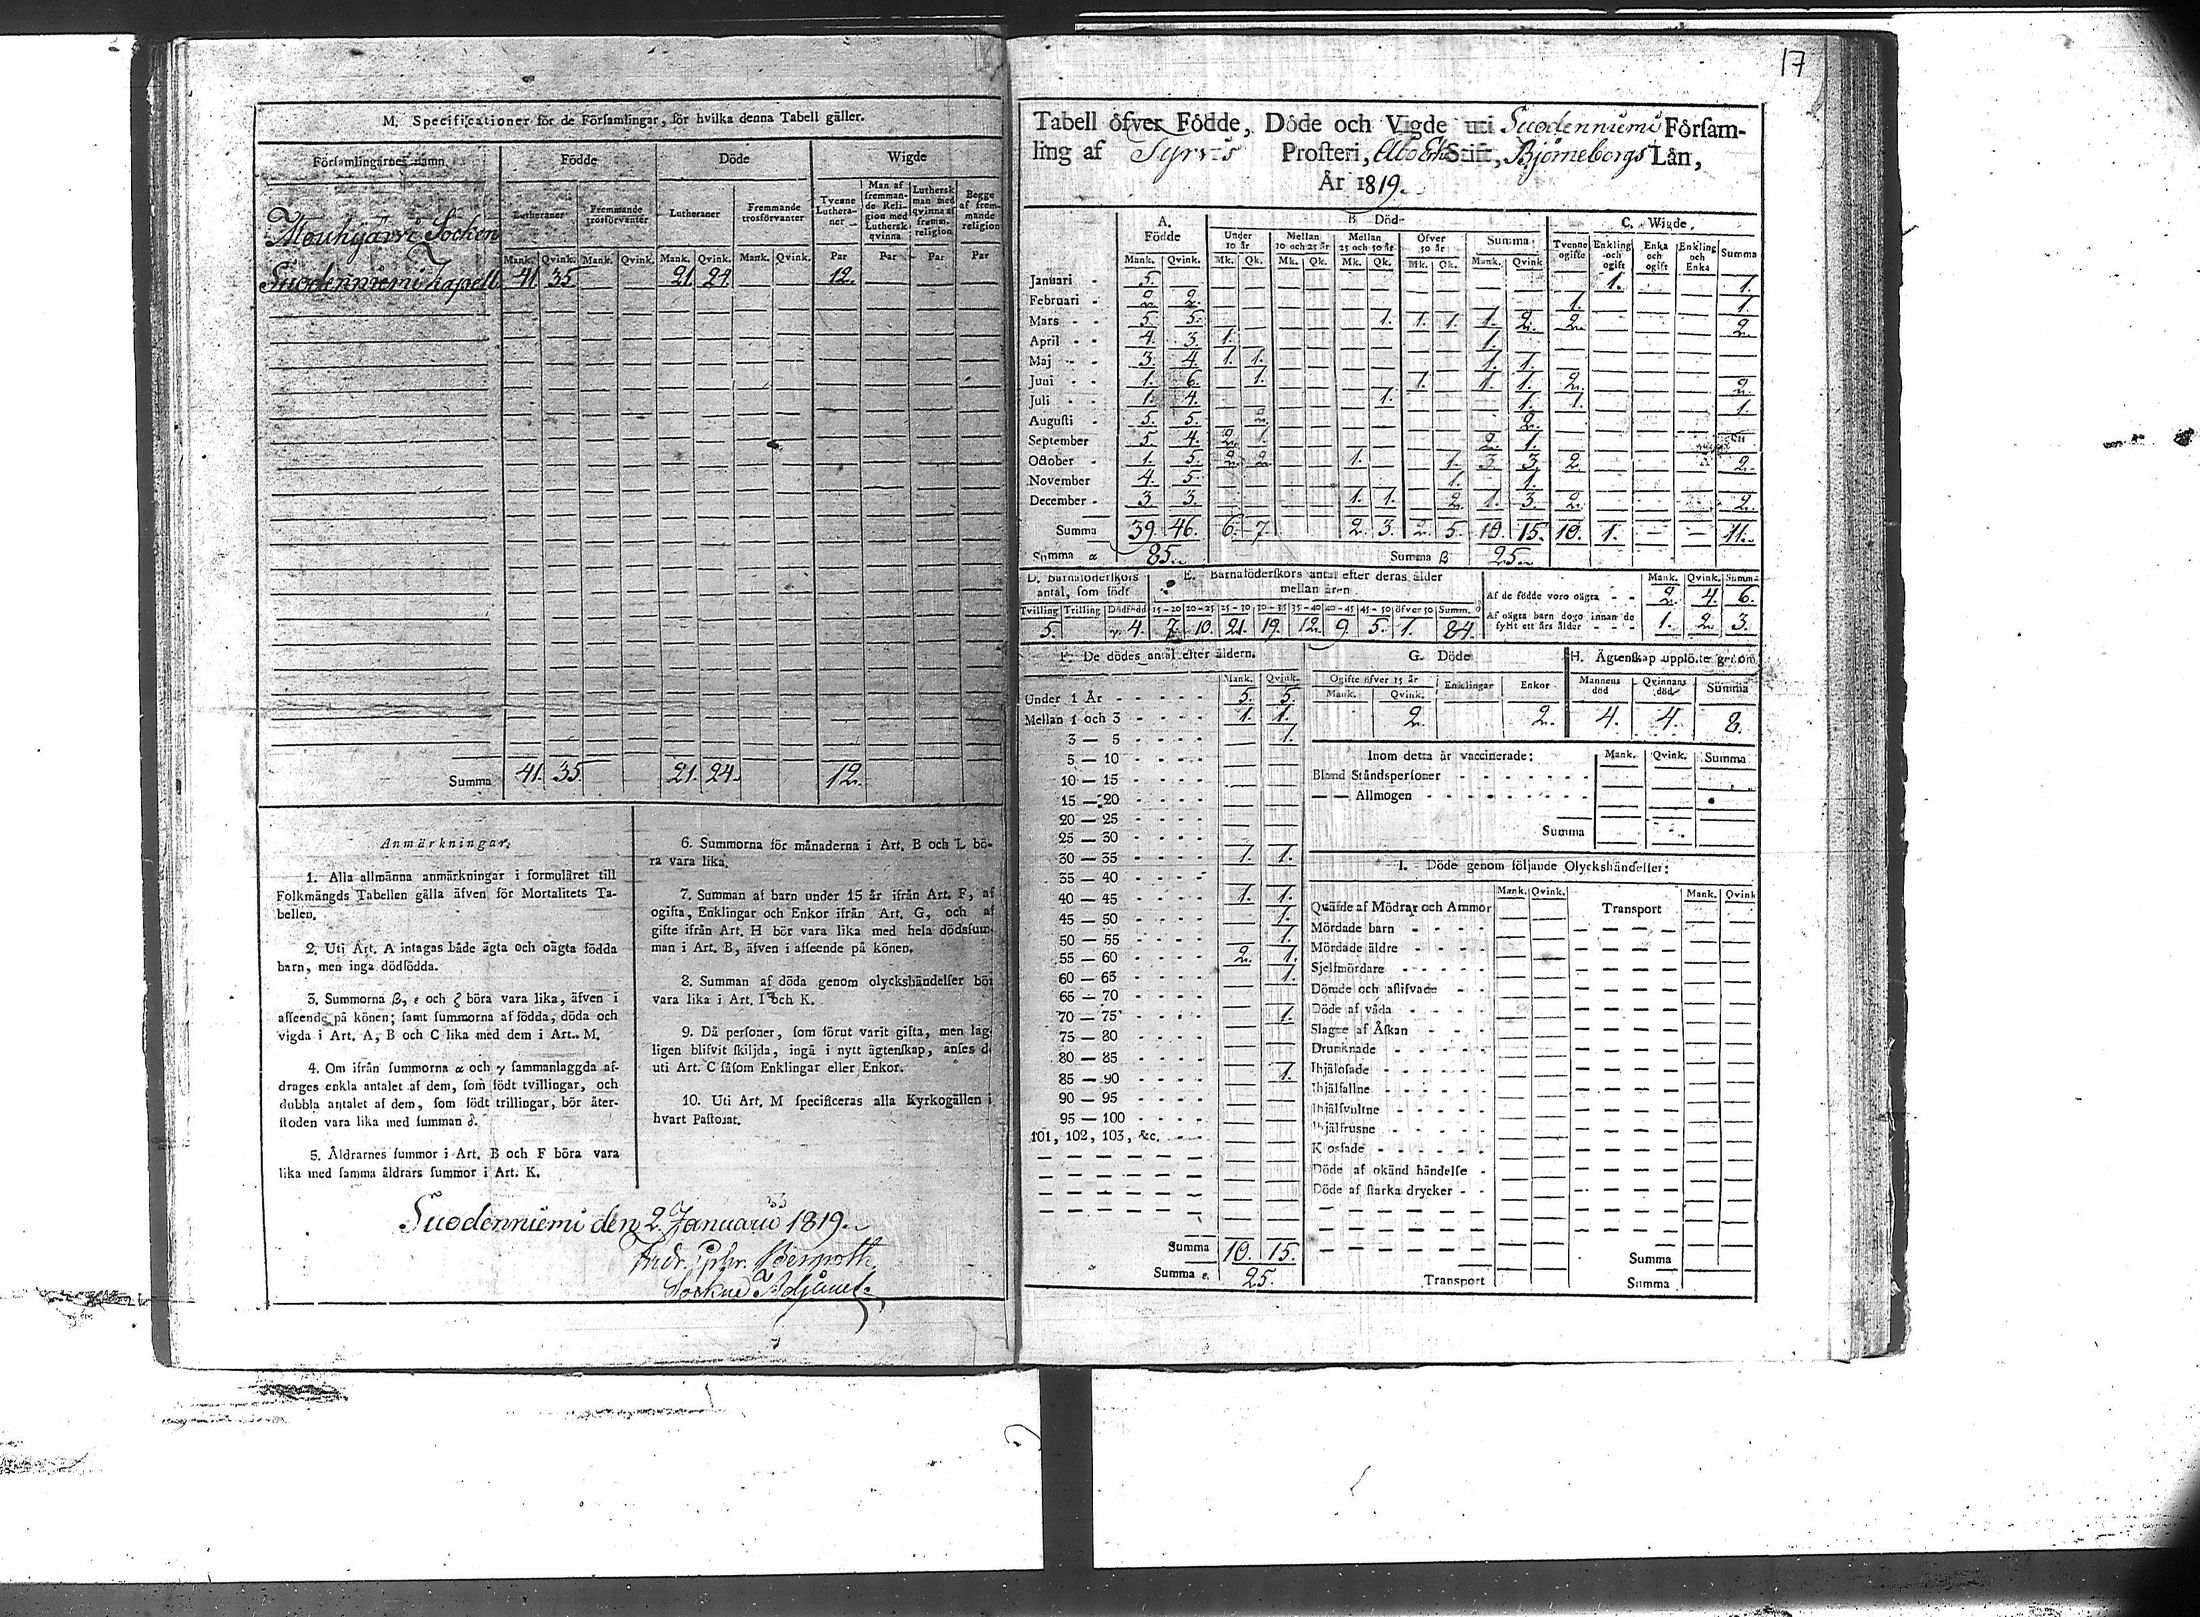 M. Specificationer för de Församlingar, för hvilka denna Tabell gäller.
Församlingarnes namn
Födde
Döde
Wigde
Lutheraner
Fremmande trosförvanter
Lutheraner
Fremmande trosförvanter
Tvenne Lutheraner
Man af fremmande Religion med Luthersk qvinna
Luthersk man med qvinna af fremm. religion
Begge af fremmande religion
Mank. Qvink. Mank. Qvink. Mank. Qvink. Mank. Qvink. Par Par Par Par
Mouhijärvi Socken
Suodenniemi Kapell 41. 35 21. 24. 12.
Summa 41. 35 21. 24. 12.
Anmärkningar.
1. Alla allmänna anmärkningar i formuläret till
Folkmängds Tabellen gälla äfven för Mortalitets Ta-
bellen.
2. Uti Art. A intagas både ägta och oägta födda
barn, men inga dödfödda.
3. Summorna β, ε och ζ böra vara lika, äfven i
afseende på könen; samt summorna af födda, döda och
vigda i Art. A, B och C lika med dem i Art. M.
4. Om ifrån summorna α och γ sammanlaggda af-
drages enkla antalet af dem, som födt tvillingar, och
dubbla antalet af dem, som födt trillingar, bör åter-
stoden vara lika med summan δ.
5. Åldrarnes summor i Art. B och F böra vara
lika med samma åldrars summor i Art. K.
6. Summorna för månaderna i Art. B och L bö-
ra vara lika.
7. Summan af barn under 15 år ifrån Art. F, af
ogifta, Enklingar och Enkor ifrån Art. G, och af
gifte ifrån Art. H bör vara lika med hela dödssum-
man i Art. B, äfven i afseende på könen.
8. Summan af döda genom olyckshändelser bör
vara lika i Art. I och K.
9. Då personer, som förut varit gifta, men lag-
ligen blifvit skiljda, ingå i nytt ägtenskap, anses de
uti Art. C såsom Enklingar eller Enkor.
10. Uti Art. M specificeras alla Kyrkogällen i
hvart Pastorat.
Suodenniemi den 2. Januarii 1819.
Andr. Ephr.
Sockne Adjunct.
17
Tabell öfver Födde, Döde och Vigde uti Suodenniemi Försam-
ling af Tyrvis Prosteri, Åbo Erke Stift, Björneborgs Län,
År 1819.
A. Födde
B Död-
C. Wigde.
Under 10 år
Mellan 10 och 25 år
Mellan 25 och 50 år
Öfver 50 år
Summa
Tvenne ogifte
Enkling och ogift
Enka och ogift
Enkling och Enka
Summa
Mank. Qvink. Mk. Qk. Mk. Qk. Mk. Qk. Mk. Qk. Mank. Qvink
Januari 5. 1. 1.
Februari 2. 2. 1. 1
Mars 5. 5. 1. 1. 1. 1. 2. 2. 2.
April 4. 3. 1. 1.
Maj 3. 4. 1. 1. 1. 1.
Juni 1. 6. 1. 1. 1. 1. 2. 2.
Juli 1. 4. 1. 1. 1. 1.
Augusti 5. 5. 2. 2.
September 5. 4. 2. 1. 2. 1.
October 1. 5. 2. 2. 1. 1. 3 3. 2. 2.
November 4. 5. 1. 1.
December 3. 3. 1. 1. 2. 1. 3. 2. 2.
Summa 39. 46. 6. 7. 2. 3. 2. 5. 10. 15. 10. 1. 11.
Summa α 85.
Summa β 25.
D. Barnaföderskors antal, som födt
E. Barnaföderskors antal efter deras ålder mellan åren
Tvilling Trilling Dödfödd 15-20 20-25 25-30 30-35 35-40 40-45 45-50 öfver 50 Summ.
5. γ. 4. 7. 10. 21. 19. 12. 9. 5. 1. 84.
Mank. Qvink. Summa
Af de födde voro oägta 2. 4. 6.
Af oägta barn dogo innan de fyllt ett års ålder 1. 2. 3.
F. De dödes antal efter åldern.
Mank. Qvink.
Under 1 År 5. 5.
Mellan 1 och 3 1. 1.
3 — 5 1.
5 — 10
10 — 15
15 — 20
20 — 25
25 — 30
30 — 35 1. 1.
35 — 40
40 — 45 1. 1.
45 — 50 1.
50 — 55 1.
55 — 60 2. 1.
60 — 63 1.
65 — 70
70 — 75 1.
75 — 80
80 — 85
85 — 90 1.
90 — 95
95 — 100
101, 102, 103, &c.
Summa 10. 15.
Summa ε. 25.
G. Döde
Ogifte öfver 15 år
Enklingar
Enkor
Mank. Qvink.
2. 2.
H. Ägtenskap upplöste genom
Mannens död
Qvinnans död
Summa
4. 4. 8.
Inom detta år vaccinerade: Mank. Qvink. Summa
Bland Ståndspersoner
— — Allmogen
Summa
I. Döde genom följande Olyckshändelser:
Mank. Qvink. Mank. Qvink
Qväfde af Mödrar och Ammor
Transport
Mördade barn
Mördade äldre
Sjelfmördare
Dömde och aflifvade
Döde af våda
Slagne af Åskan
Drunknade
Ihjälosade
Ihjälfallne
Ihjälsvultne
Ihjälfrusne
Krossade
Döde af okänd händelse
Döde af starka drycker
Summa
Transport
Summa